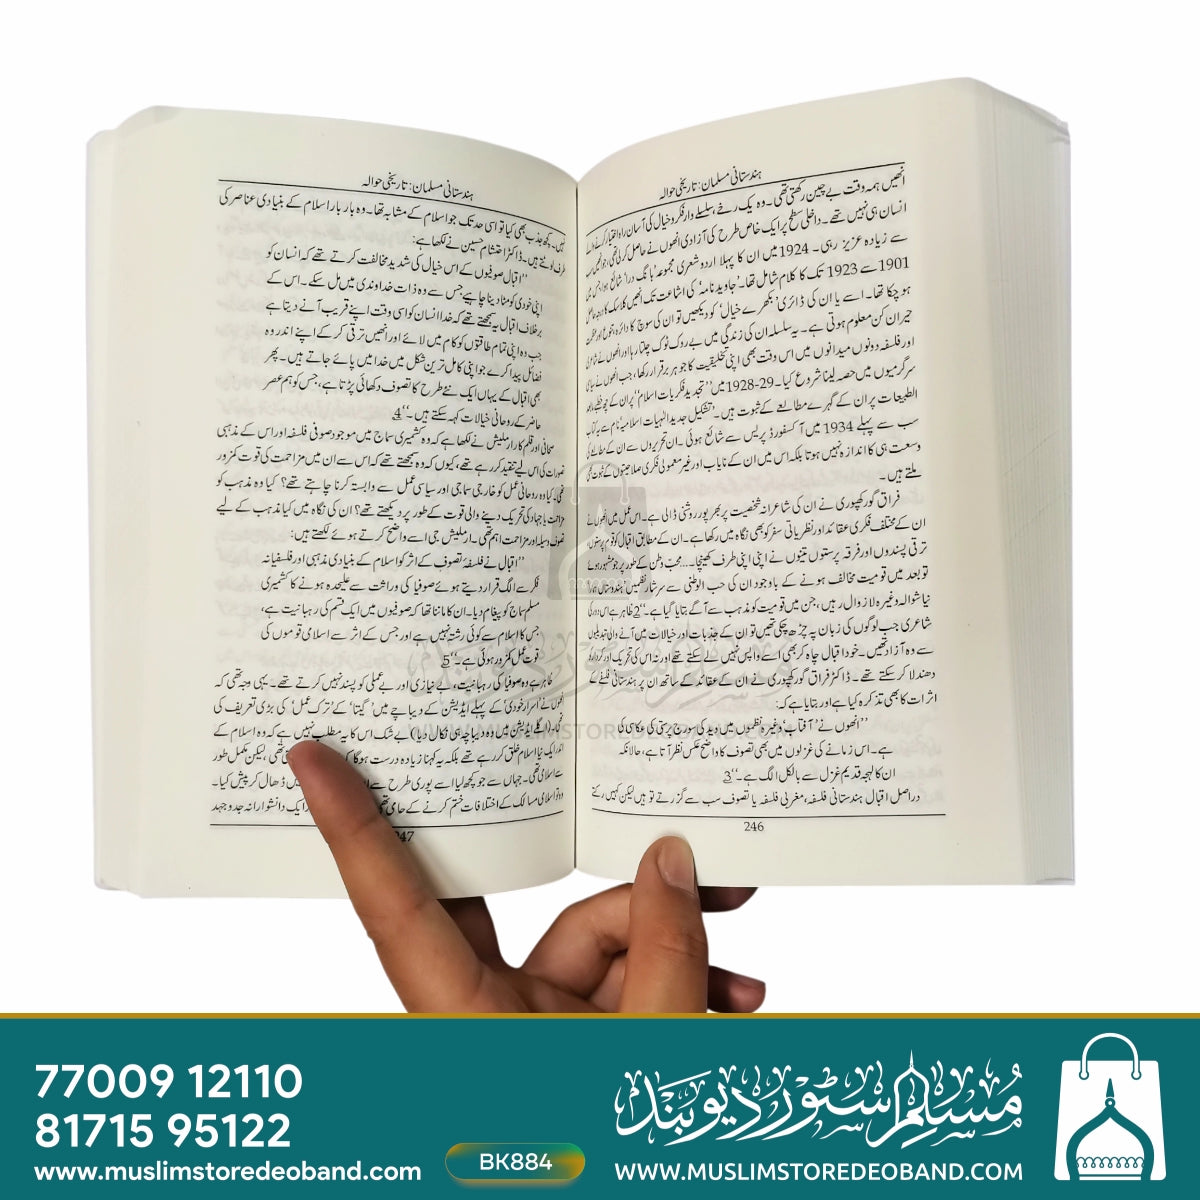 ہندستانی مسلمان: تاریخی حوالہ
انھیں ہمہ وقت بے چین رکھتی تھی۔ وہ یک رخے، سلسلے وار فکر و خیال کی آسان راہ اختیار کرنے والے
انسان ہی نہیں تھے۔ داخلی سطح پر ایک خاص طرح کی آزادی انھوں نے حاصل کر لی تھی، جو انھیں سب
سے زیادہ عزیز رہی۔ 1924 میں ان کا پہلا اردو شعری مجموعہ 'بانگ درا' شائع ہوا جس میں
1901 سے 1923 تک کا کلام شامل تھا۔ 'جاوید نامہ' کی اشاعت تک انھیں کلاسک کا درجہ حاصل
ہو چکا تھا۔ اسے یا ان کی ڈائری 'بکھرے خیال' کو دیکھیں تو ان کی سوچ کا دائرہ متنوع اور
حیران کن معلوم ہوتی ہے۔ یہ سلسلہ ان کی زندگی میں بے روک ٹوک چلتا رہا اور انھوں نے شاعری
اور فلسفہ دونوں میدانوں میں اس وقت بھی اپنی تخلیقیت کا جوہر برقرار رکھا، جب انھوں نے سیاسی
سرگرمیوں میں حصہ لینا شروع کیا۔ 29-1928 میں ''تجدید فکریات اسلام'' پر ان کے چھ خطبے
الطبیعات پر ان کے گہرے مطالعے کے ثبوت ہیں۔ 'تشکیل جدید الٰہیات اسلامیہ' نام سے یہ کتاب
سب سے پہلے 1934 میں آکسفورڈ پریس سے شائع ہوئی۔ ان تحریروں سے ان کے مطالعے کی
وسعت ہی کا اندازہ نہیں ہوتا بلکہ اس میں ان کے نایاب اور غیر معمولی فکری صلاحیتوں کے ثبوت بھی
ملتے ہیں۔
فراق گورکھپوری نے ان کی شاعرانہ شخصیت پر بھرپور روشنی ڈالی ہے۔ اس عمل میں انھوں نے
ان کے مختلف فکری عقائد اور نظریاتی سفر کو بھی نگاہ میں رکھا ہے۔ ان کے مطابق اقبال کو قوم پرستوں
ترقی پسندوں اور فرقہ پرستوں تینوں نے اپنی اپنی طرف کھینچا۔... محب وطن کے طور پر جو مشہور ہوئے
تو بعد میں قومیت مخالف ہونے کے باوجود ان کی حب الوطنی سے سرشار نظمیں ہندوستاں ہمارا
نیا شوالہ وغیرہ لازوال رہیں، جن میں قومیت کو مذہب سے آگے بتایا گیا ہے۔''2 ظاہر ہے اس دور کی
شاعری جب لوگوں کی زبان پہ چڑھ چکی تھیں تو ان کے جذبات اور خیالات میں آنے والی تبدیلیوں
سے وہ آزاد تھیں۔ خود اقبال چاہ کر بھی اسے واپس نہیں لے سکتے تھے اور نہ اس کی تحریک اور کردار کو
دھندلا کر سکتے تھے۔ ڈاکٹر فراق گورکھپوری نے ان کے عقائد کے ساتھ ان پر ہندستانی فلسفے کے
اثرات کا بھی تذکرہ کیا ہے اور بتایا ہے کہ:
''انھوں نے 'آفتاب' وغیرہ نظموں میں وید کی سورج پرستی کی عکاسی کی
ہے۔ اس زمانے کی غزلوں میں بھی تصوف کا واضح عکس نظر آتا ہے، حالانکہ
ان کا لہجہ قدیم غزل سے بالکل الگ ہے۔''3
دراصل اقبال ہندستانی فلسفہ، مغربی فلسفہ یا تصوف سب سے گزرتے تو ہیں لیکن کہیں رکتے
246
ہندستانی مسلمان: تاریخی حوالہ
نہیں۔ کچھ جذب بھی کیا تو اسی حد تک جو اسلام کے مشابہ تھا۔ وہ بار بار اسلام کے بنیادی عناصر کی
طرف لوٹتے ہیں۔ ڈاکٹر احتشام حسین نے لکھا ہے:
''اقبال صوفیوں کے اس خیال کی شدید مخالفت کرتے تھے کہ انسان کو
اپنی خودی کو مٹا دینا چاہیے جس سے وہ ذات خداوندی میں مل سکے۔ اس کے
برخلاف اقبال یہ سمجھتے تھے کہ خدا انسان کو اسی وقت اپنے قریب آنے دیتا ہے
جب وہ اپنی تمام طاقتوں کو کام میں لائے اور انھیں ترقی کر کے اپنے اندر وہ
فضائل پیدا کرے جو اپنی کامل ترین شکل میں خدا میں پائے جاتے ہیں۔ پھر
بھی اقبال کے یہاں ایک نئے طرح کا تصوف دکھائی پڑتا ہے، جس کو ہم عصر
حاضر کے روحانی خیالات کہہ سکتے ہیں۔''4
صحافی اور قلم کار ارملیش نے لکھا ہے کہ وہ کشمیری سماج میں موجود صوفی فلسفہ اور اس کے مذہبی
تصورات کی اس لیے تنقید کر رہے تھے، کیوں کہ وہ سمجھتے تھے کہ اس سے ان میں مزاحمت کی قوت کمزور
تھی۔ کیا وہ روحانی عمل کو خارجی سماجی اور سیاسی عمل سے وابستہ کرنا چاہتے تھے؟ کیا وہ مذہب کو
مزاحمت یا جہاد کی تحریک دینے والی قوت کے طور پر دیکھتے تھے؟ ان کی نگاہ میں کیا مذہب کے لیے
تصوف وسیلہ اور مزاحمت اہم تھی۔ ارملیش جی اسے واضح کرتے ہوئے لکھتے ہیں:
''اقبال نے فلسفۂ تصوف کے اثر کو اسلام کے بنیادی مذہبی اور فلسفیانہ
فکر سے الگ قرار دیتے ہوئے صوفیا کی وراثت سے علیحدہ ہونے کا کشمیری
مسلم سماج کو پیغام دیا۔ ان کا ماننا تھا کہ صوفیوں میں ایک قسم کی رہبانیت ہے،
جس کا اسلام سے کوئی رشتہ نہیں ہے اور جس کے اثر سے اسلامی قوموں کی
قوت عمل کمزور ہوئی ہے۔''5
ظاہر ہے وہ صوفیا کی رہبانیت، بے نیازی اور بے عملی کو پسند نہیں کرتے تھے۔ یہی وجہ تھی کہ
انھوں نے 'اسرار خودی' کے پہلے ایڈیشن کے دیباچے میں 'گیتا' کے 'ترک عمل' کی بڑی تعریف کی
تھی، (اگلے ایڈیشن میں وہ دیباچہ ہی نکال دیا) بے شک اس کا یہ مطلب نہیں ہے کہ وہ اسلام کے
اندر ایک نیا اسلام خلق کر رہے تھے بلکہ یہ کہنا زیادہ درست ہوگا کہ تھی، لیکن مکمل طور
سے اسلامی تھی۔ جہاں سے جو کچھ لیا اسے پوری طرح سے میں ڈھال کر پیش کیا۔
وہ تو اسلامی مسالک کے اختلافات ختم کرنے کے حامی تھے ایک دانشورانہ جدوجہد
247
WWW.MUSLIMSTOREDEOBAND.COM
77009 12110
81715 95122
www.muslimstoredeoband.com
BK884
مسلم سٹور دیوبند
WWW.MUSLIMSTOREDEOBAND.COM